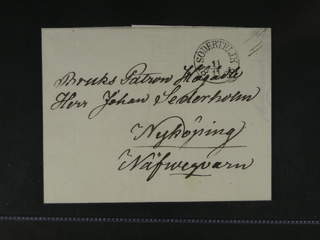 SÖDERTELJE
11
Bruks Patron Högädle
Herr Johan Sederholm
Nyköping
Näfweqvarn